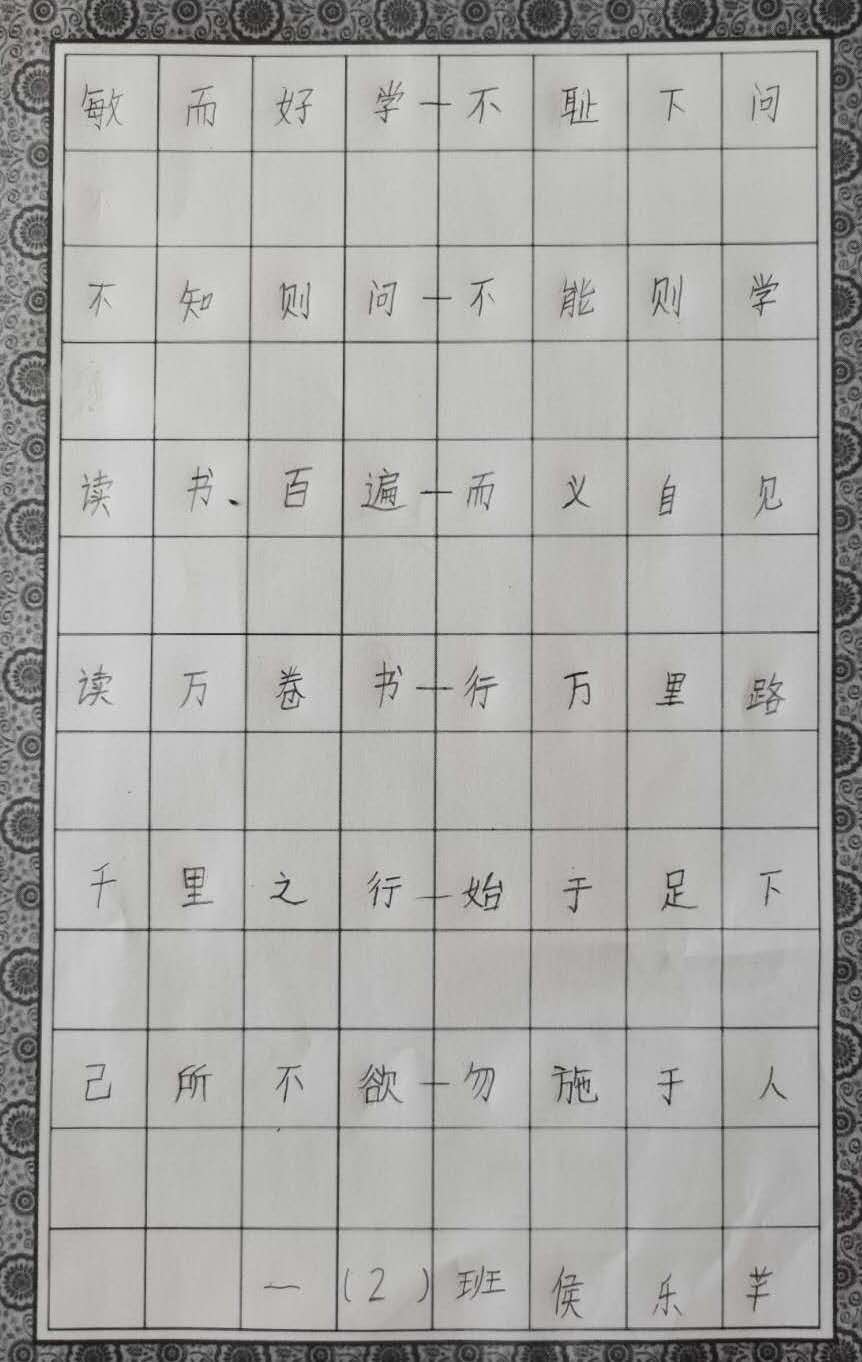 敏而好学—不耻下问
不知则问—不能则学
读书百遍—而义自见
读万卷书—行万里路
千里之行—始于足下
己所不欲—勿施于人
一(2)班侯乐芊